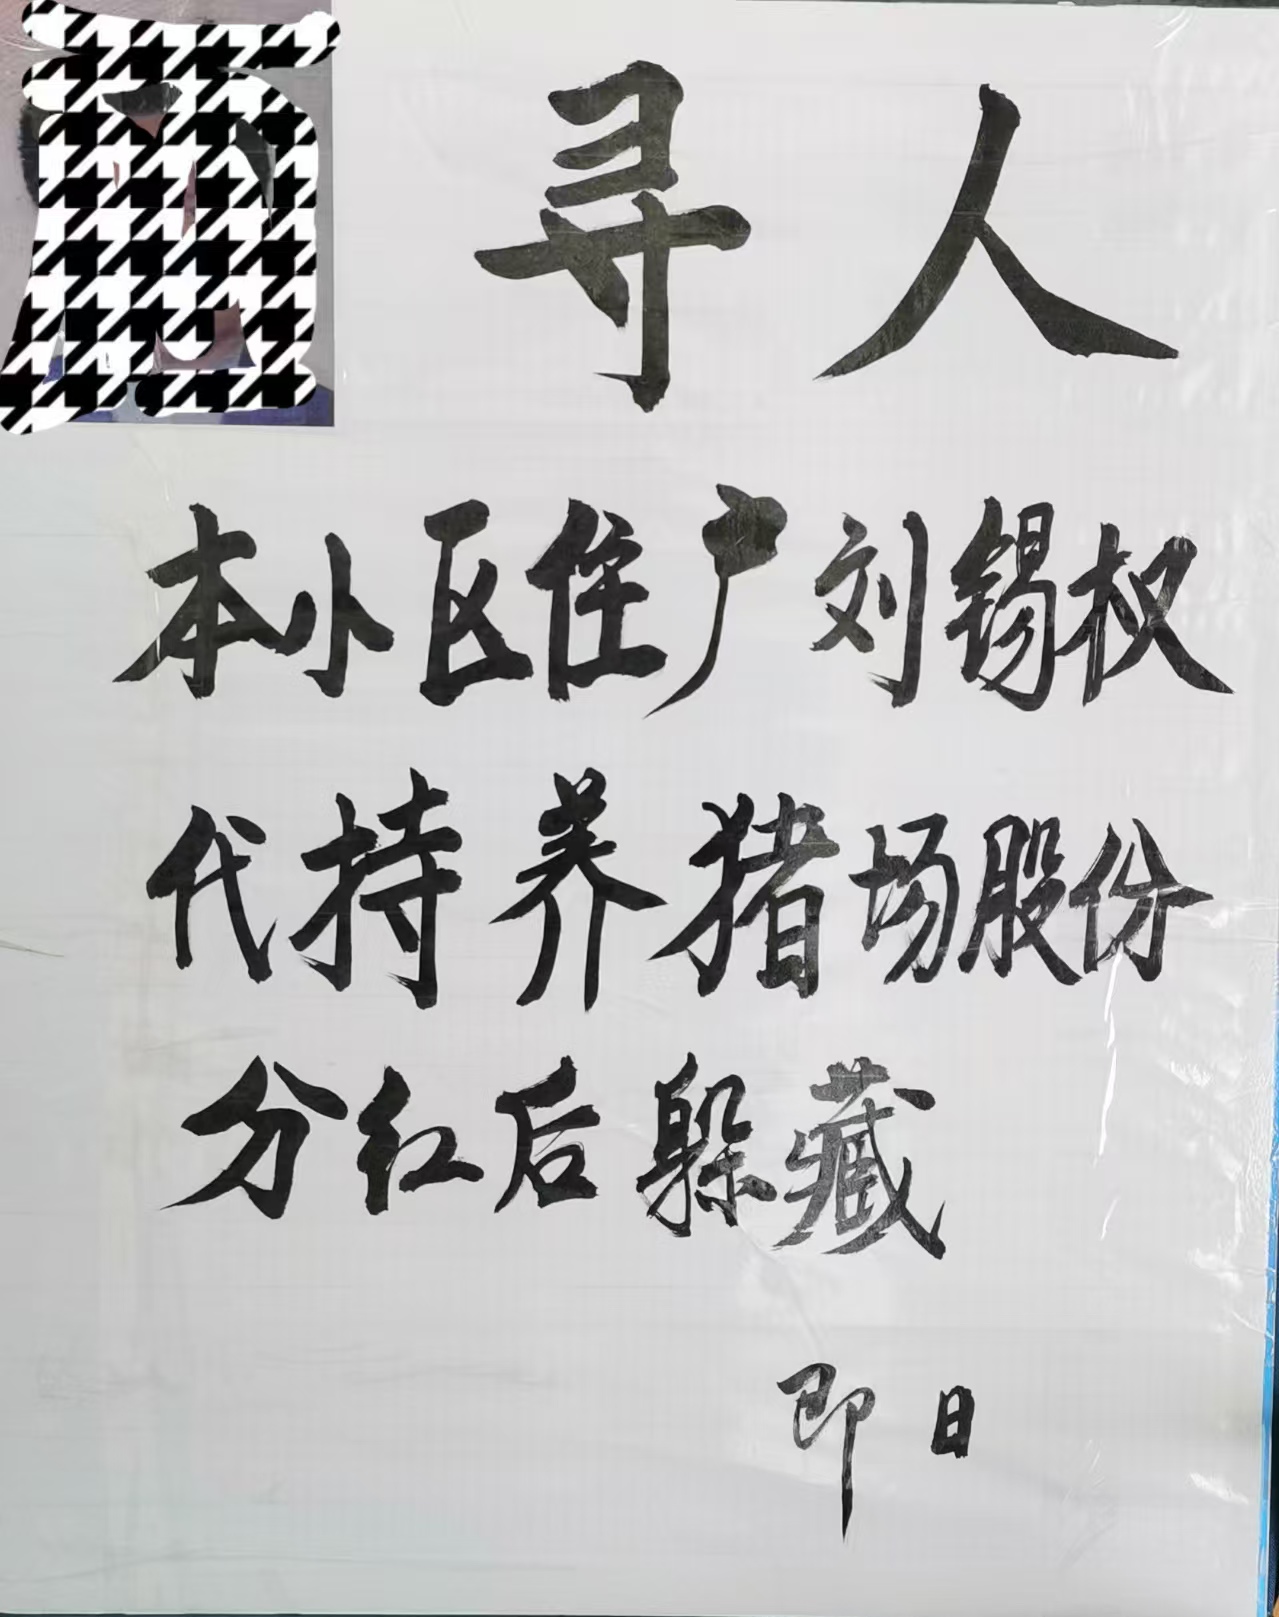 寻人
本小区住户刘锡权
代持养猪场股份
分红后躲藏
即日